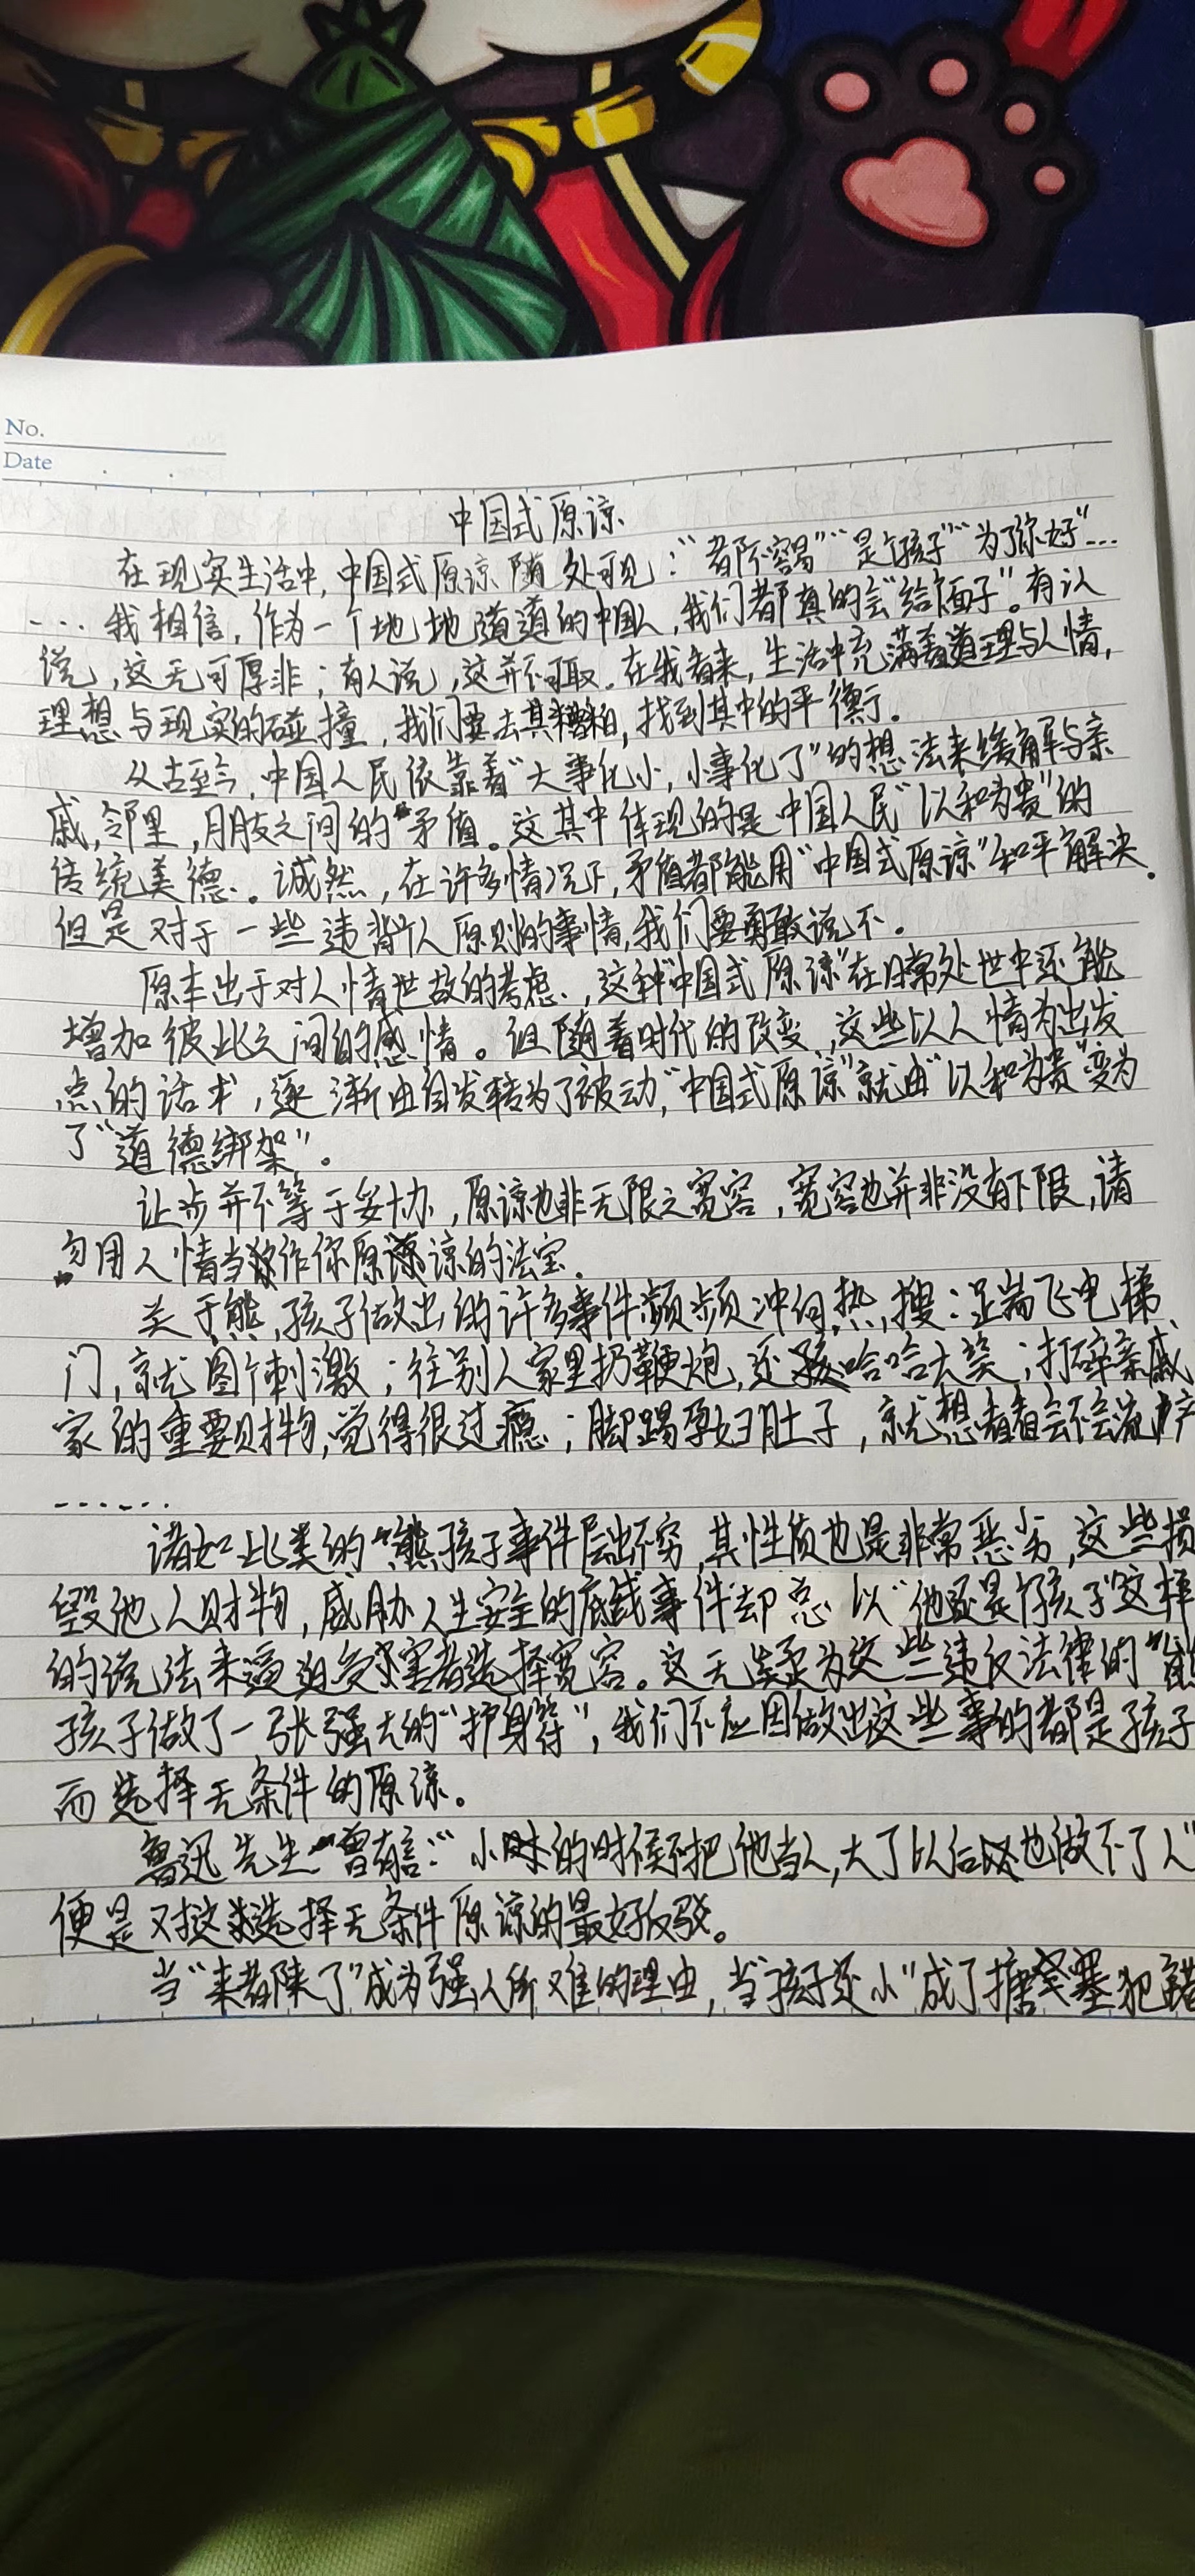 No.
Date
中国式原谅
在现实生活中,中国式原谅随处可见:“都不容易”“是个孩子”“为了你好”…
…我相信,作为一个地地道道的中国人,我们都真的会“给个面子”。有认
说,这无可厚非;有人说,这并不可取。在我看来,生活中充满着道理与人情,
理想与现实的碰撞,我们要去其糟粕,找到其中的平衡。
从古至今,中国人民依靠着“大事化小,小事化了”的想法来缓解与亲
戚,邻里,朋友之间的矛盾。这其中体现的是中国人民“以和为贵”的
传统美德。诚然,在许多情况下,矛盾都能用“中国式原谅”和平解决。
但是对于一些违背个人原则的事情,我们要勇敢说不。
原本出于对人情世故的考虑,这种“中国式原谅”在日常处世中还能
增加彼此之间的感情。但随着时代的改变,这些以人情为出发
点的话术,逐渐由自发转为了被动,“中国式原谅”就由“以和为贵”变为
了“道德绑架”。
让步并不等于妥协,原谅也非无限之宽容,宽容也并非没有下限,请
勿用人情当作你原谅的法宝。
关于熊孩子做出的许多事件频频冲向热搜:足踹飞电梯
门,就图个刺激;往别人家里扔鞭炮,还哈哈大笑;打碎亲戚
家的重要财物,觉得很过瘾;脚踢孕妇肚子,就想看看会不会流产
……
诸如此类的“熊孩子事件层出不穷,其性质也是非常恶劣,这些损
毁他人财物,威胁人生安全的底线事件却总以“他还是个孩子”这样
的说法来逼迫受害者选择宽容。这无疑为这些违反法律的“熊
孩子做了一张强大的“护身符”,我们不应因做出这些事的都是孩子
而选择无条件的原谅。
鲁迅先生曾有言:“小的时候不把他当人,大了以后也做不了人”
便是对这选择无条件原谅的最好反驳。
当“来都来了”成为强人所难的理由,当“孩子还小”成了搪塞犯错